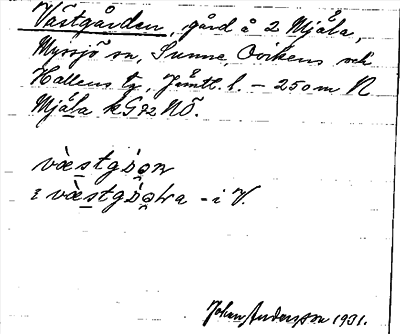 Västgården, gård å 2 Mjåla,
Myssjö sn, Sunne, Ovikens och
Hallens tg, Jämtl. l. – 250 m N
Mjåla kG72NÖ.
væ̀stgo̊́ən
i væ̀stgo̊́əɴa - i V.
Johan Andersson 1931.